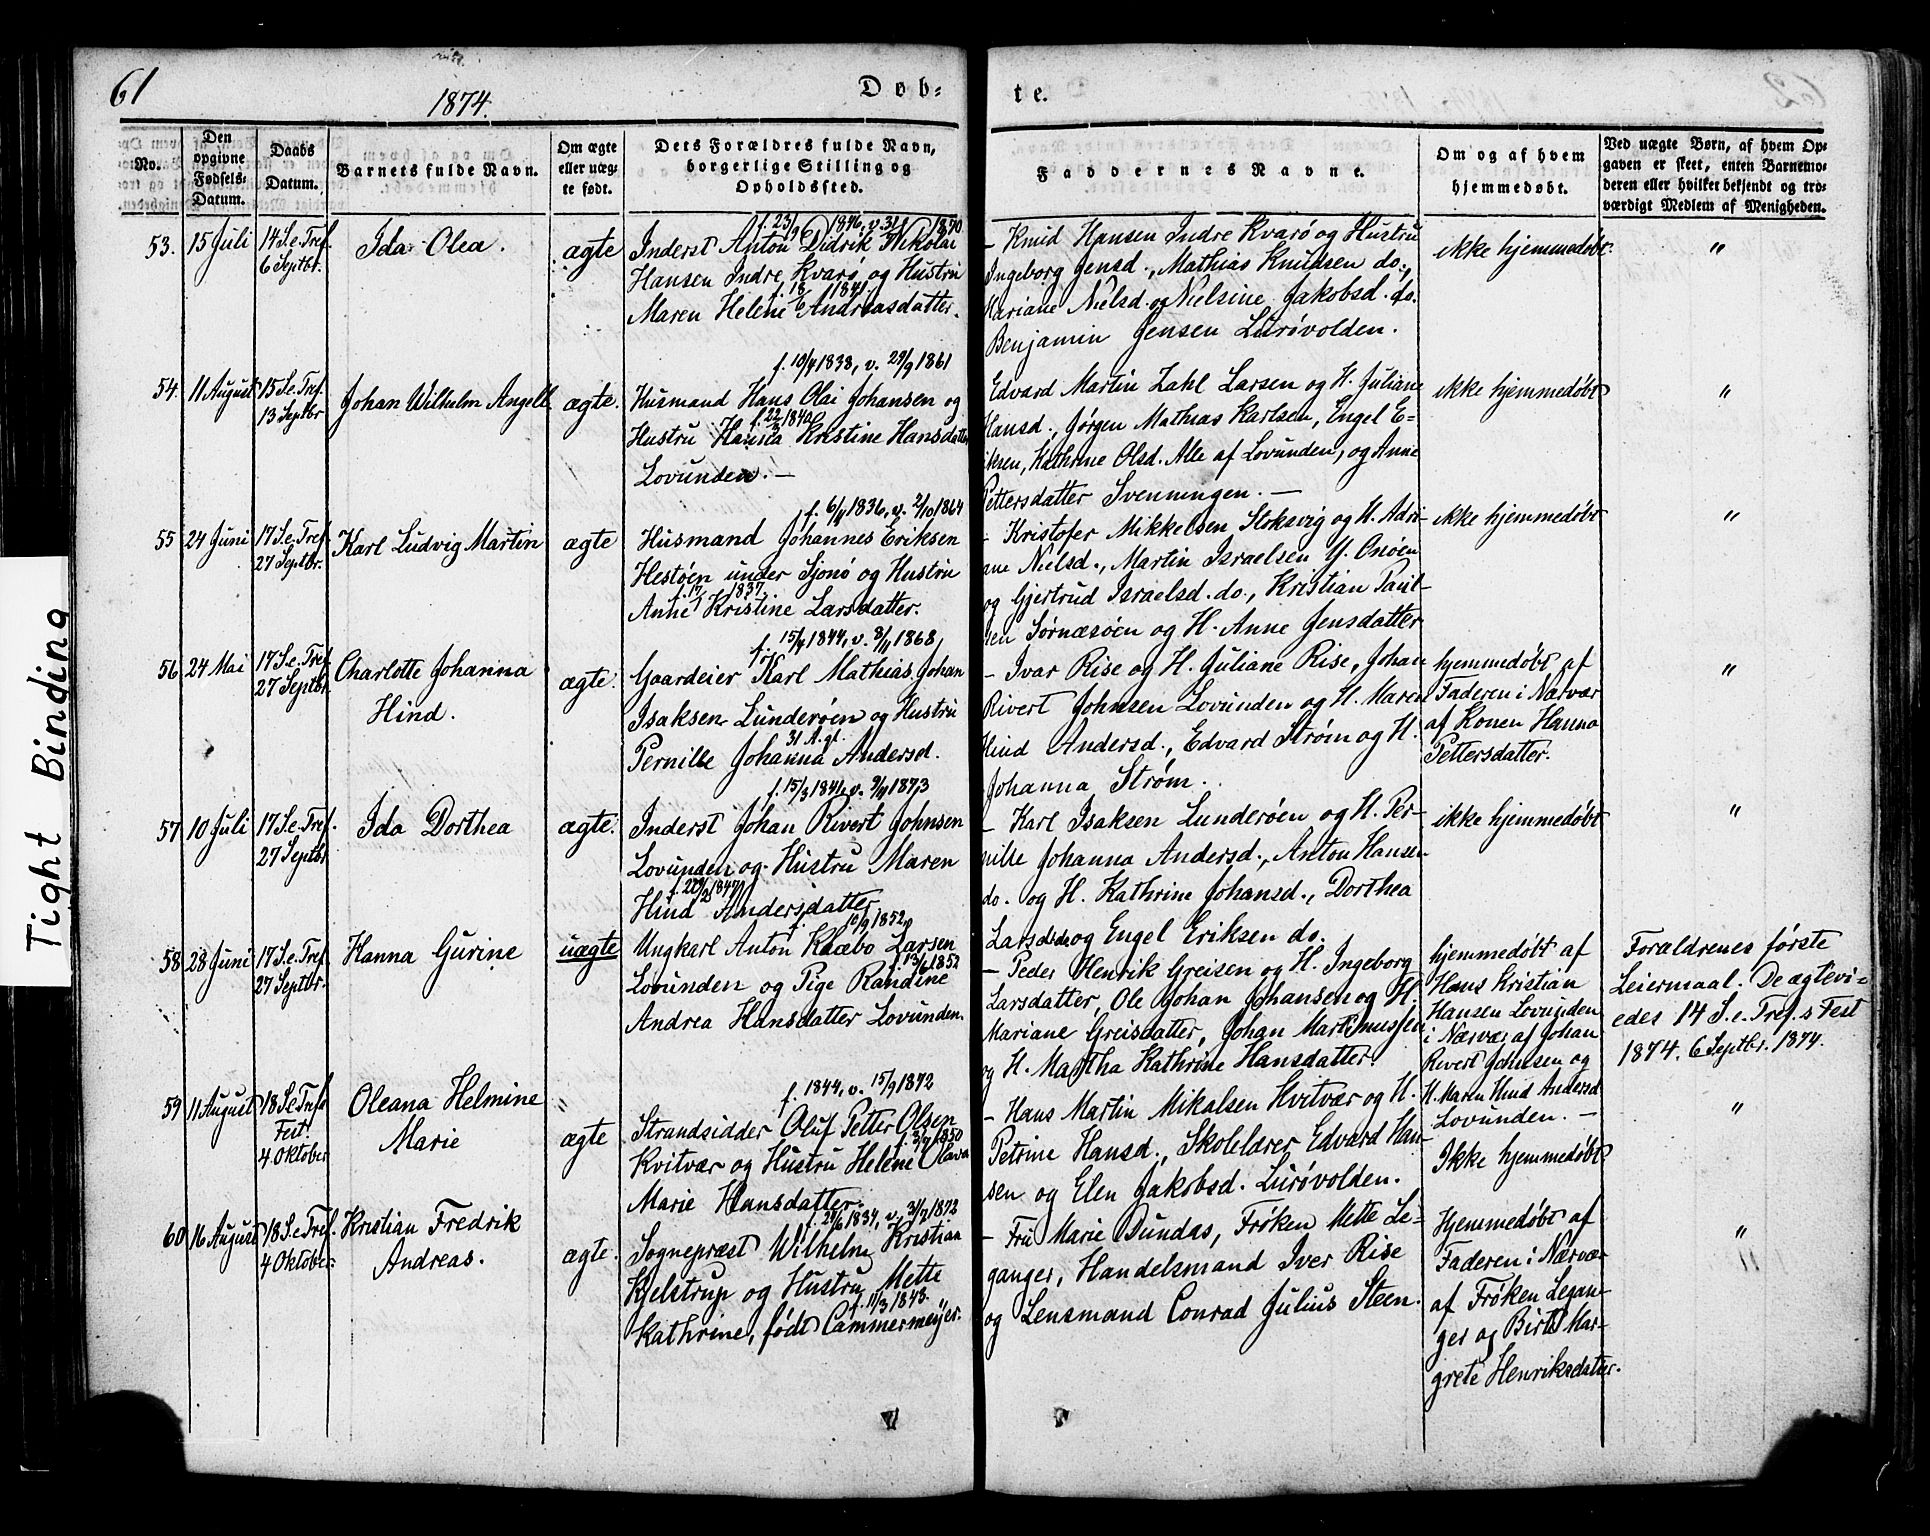 61
1874.
Døb-
te.
No.
Den opgivne Fødsels-Datum.
Daabs Datum.
Barnets fulde Navn.
Om ægte eller uægte født.
Dets Forældres fulde Navn, borgerlige Stilling og Opholdssted.
Faddernes Navne.
Om og af hvem hjemmedøbt.
Ved uægte Børn, af hvem Opgaven er skeet, enten Barnemoderen eller hvilket bekjendt og troværdigt Medlem af Menigheden.
53. 15 Juli
14 S. e. Tref.
6 Septbr.
Ida Olea.
ægte
1846, v. 1870
Inderst Anton Didrik Nikolai
Hansen Indre Kvarø og Hustru
f. 1841.
Maren Helene Andreasdatter.
- Knud Hansen Indre Kvarø og Hustru
Ingeborg Jensd., Mathias Knudsen do.,
Mariane Nielsd. og Nielsine Jakobsd. do.
Benjamin Jensen Lurøvolden.
ikke hjemmedøbt.
"
54. 11 August
15 S. e. Tref.
13 Septbr
Johan Wilhelm Angell
ægte.
f. 10/4 1838, v. 29/9 1861
Husmand Hans Olai Johansen og
f. 22/3 1840
Hustru Hanna Kristine Hansdatter
Lovunden. -
Edvard Martin Zahl Larsen og H. Juliane
Hansd., Jørgen Mathias Karlsen, Engel E-
riksen, Kathrine Olsd. Alle af Lovunden, og Anne
Pettersdatter Svenningen. -
ikke hjemmedøbt
"
55 24 Juni
17 S. e. Tref.
27 Septbr.
Karl Ludvig Martin
ægte
f. 6/4 1836, v. 2/10 1864
Husmand Johannes Eriksen
Hestøen under Sjonø og Hustru
f. 1837.
Anne Kristine Larsdatter.
- Kristofer Mikkelsen Stoksvig og H. Adri-
ane Nielsd., Martin Israelsen Y. Onøen
og Gjertrud Israelsd. do., Kristian Paul-
sen Sørnæsøen og H. Anne Jensdatter
ikke hjemmedøbt
"
56 24 Mai
17 S. e. Tref.
27 Septbr.
Charlotte Johanna
Hind.
ægte.
f. 15/4 1844, v. 8/11 1868
Gaardeier Karl Mathias Johan
Isaksen Lunderøen og Hustru
31 A. gl.
Pernille Johanna Andersd.
- Ivar Rise og H. Juliane Rise, Johan
Rivert Johnsen Lovunden og H. Maren
Hind Andersd., Edvard Strøm og H.
Johanna Strøm.
hjemmedøbt af
Faderen i Nærvær
af Konen Hanna
Pettersdatter.
"
57. 10 Juli
17 S. e. Tref.
27 Septbr
Ida Dorthea
ægte.
f. 15/3 1841, v. 9/11 1873
Inderst Johan Rivert Johnsen
Lovunden og Hustru Maren
f. 1847
Hind Andersdatter
- Karl Isaksen Lunderøen og H. Per-
nille Johanna Andersd., Anton Hansen
do. og H. Kathrine Johansd., Dorthea
Larsd. do og Engel Eriksen do.
ikke hjemmedøbt
"
58 28 Juni
17 S. e. Tref.
27 Septbr.
Hanna Gurine
uægte
f. 10/9 1852
Ungkarl Anton Klæbo Larsen
f. 13/6 1852
Lovunden og Pige Randine
Andrea Hansdatter Lovunden.
- Peder Henrik Greisen og H. Ingeborg
Larsdatter, Ole Johan Johansen og H.
Mariane Greisdatter, Johan Martinussen
og H. Martha Kathrine Hansdatter.
hjemmedøbt af
Hans Kristian
Hansen Lovunden
i Nærvær af Johan
Rivert Johnsen og
H. Maren Hind Andersd
Lovunden. -
Forældrenes første
Leiermaal. De ægtevi-
edes 14 S. e. Tref.s Fest
1874. 6 Septbr. 1874.
59 11 August
18 S. e. Tref.s
Fest.
4. Oktober
Oleana Helmine
Marie
ægte
f. 1844, v. 15/9 1872
Strandsidder Oluf Petter Olsen
f. 3/7 1850
Kvitvær og Hustru Helene Olava
Marie Hansdatter.
- Hans Martin Mikalsen Kvitvær og H.
Petrine Hansd., Skolelærer Edvard Han-
sen og Elen Jakobsd. Lurøvolden.
Ikke hjemmedøbt
"
60 16 August
18 S. e. Tref.
4 Oktober
Kristian Fredrik
Andreas.
ægte.
f. 29/6 1834, v. 3/7 1872
Sognepræst Wilhelm Kristian
Kjelstrup og Hustru Mette
f. 11/3 1848.
Kathrine, født Cammermeijer.
- Fru Marie Dundas, Frøken Mette Le-
ganger, Handelsmand Iver Rise
og Lensmand Conrad Julius Steen.
Hjemmedøbt af
Faderen i Nærvær
af Frøken Legan-
ger og Birte Mar-
grete Henriksdatter.
"
Tight Binding